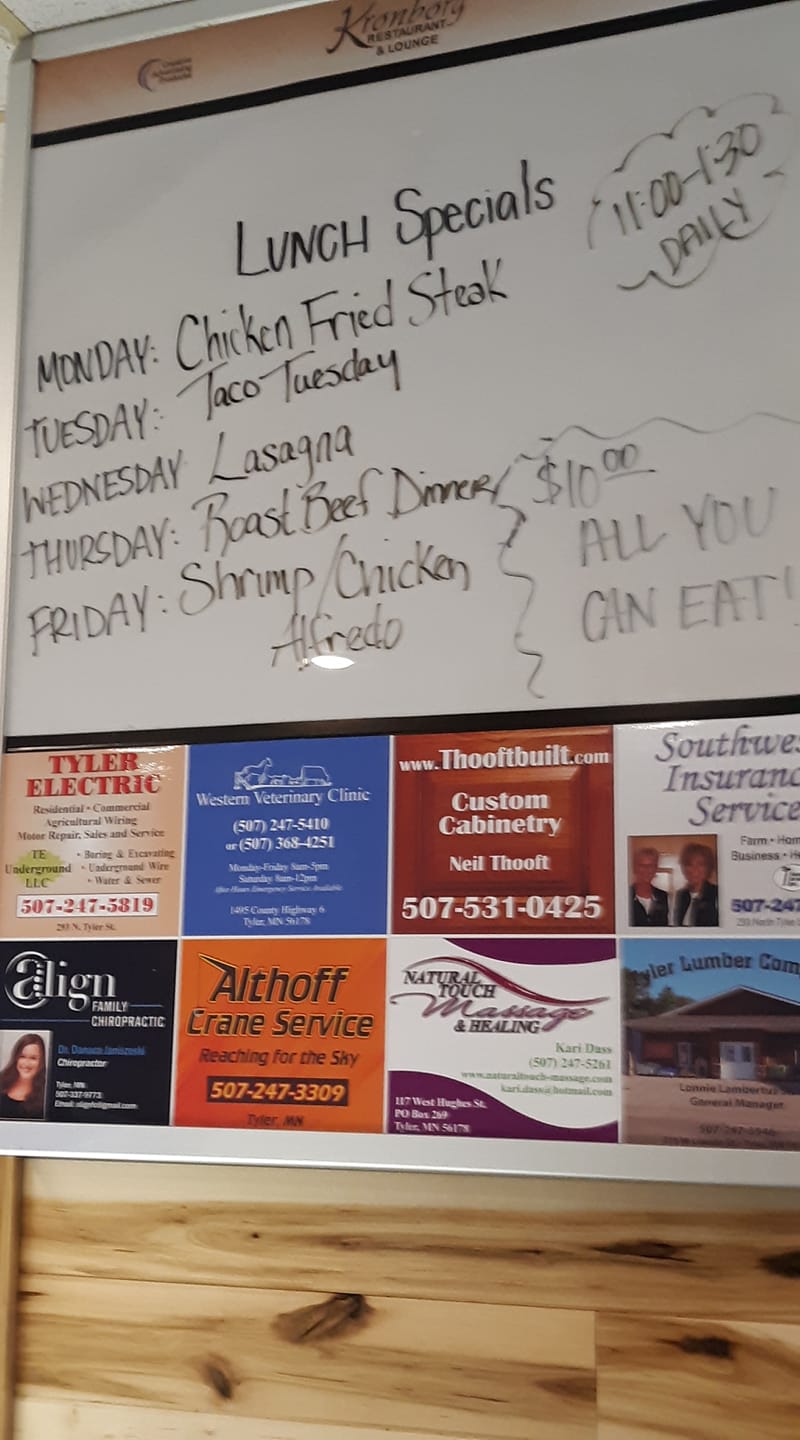 Kronborg
RESTAURANT
& LOUNGE
Creative
Advertising
Products
LUNCH Specials
11:00-1:30
DAILY
MONDAY: Chicken Fried Steak
TUESDAY: Taco Tuesday
WEDNESDAY Lasagna
THURSDAY: Roast Beef Dinner
FRIDAY: Shrimp/Chicken
Alfredo
$10 00
ALL YOU
CAN EAT!
TYLER
ELECTRIC
Residential • Commercial
Agricultural Wiring
Motor Repair, Sales and Service
TE
Underground
LLC
• Boring & Excavating
• Underground Wire
• Water & Sewer
507-247-5819
293 N. Tyler St.
Western Veterinary Clinic
(507) 247-5410
or (507) 368-4251
Monday-Friday 8am-5pm
Saturday 8am-12pm
After Hours Emergency Service Available
1495 County Highway 6
Tyler, MN 56178
www.Thooftbuilt.com
Custom
Cabinetry
Neil Thooft
507-531-0425
Southwes
Insuranc
Service
Farm • Hom
Business • H
507-247
align
FAMILY
CHIROPRACTIC
Chiropractor
Tyler, MN
Althoff
Crane Service
Reaching for the Sky
507-247-3309
Tyler, MN
NATURAL
TOUCH
Massage
& HEALING
Kari Dass
(507) 247-5261
www.naturaltouch-massage.com
kari.dass@hotmail.com
117 West Hughes St.
PO Box 269
Tyler, MN 56178
yler Lumber Com
Lonnie Lambertus
General Manager